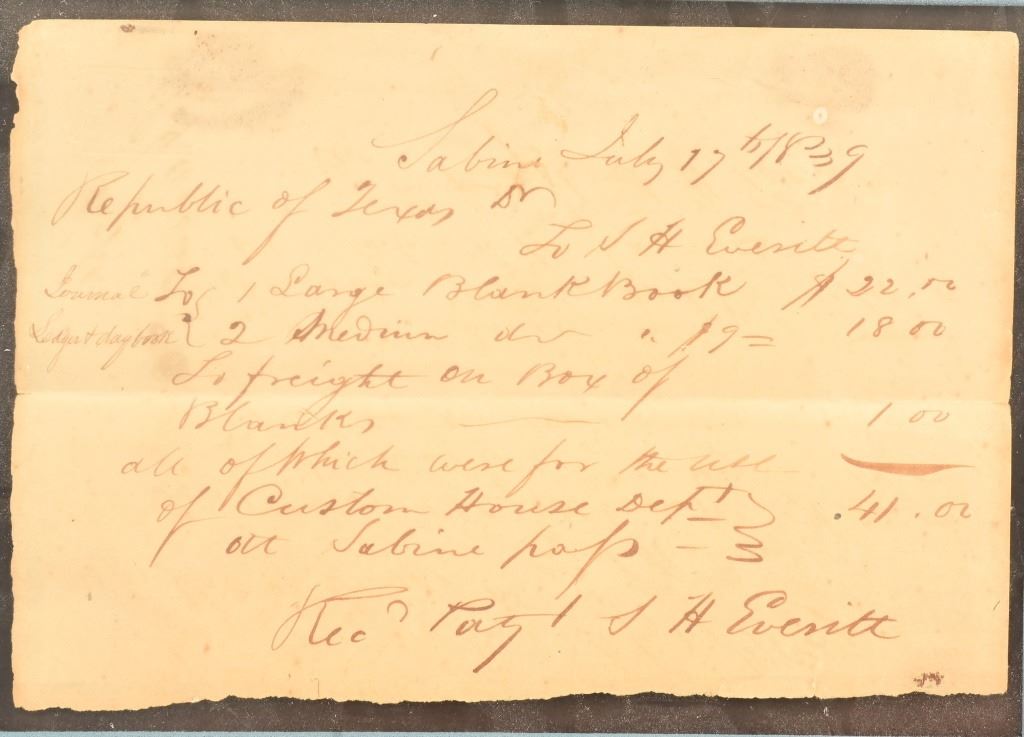 Sabine July 17th 1839
Republic of Texas Dr
To S H Everitt
Journal To { 1 Large Blank Book $ 22.00
Ledger & day book } 2 Medium do " $9 = 18 00
To freight on Box of
Blanks — 1 00
all of Which were for the use
of Custom House Dept } .41.00
att Sabine pass — }
Recd Payt S H Everitt